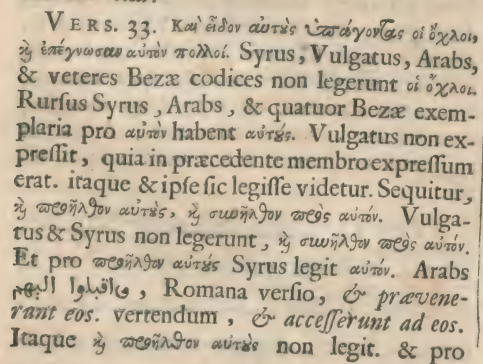 VERS. 33. Καὶ εἶδον αὐτὺς ὑπάγονϊας οἱ ὄχλοι,
ϗ ἐπέγνωσαν αὐτὸν πολλοί. Syrus, Vulgatus, Arabs,
& veteres Bezæ codices non legerunt οἱ ὄχλοι.
Rurſus Syrus, Arabs, & quatuor Bezæ exem-
plaria pro αὐτὸν habent αὐτȣς. Vulgatus non ex-
preſſit, quia in præcedente membro expreſſum
erat. itaque & ipſe ſic legiſſe videtur. Sequitur,
ϗ προῆλθον αὐτȣς, ϗ συνῆλθον πρὸς αὐτόν. Vulga-
tus & Syrus non legerunt, ϗ συνῆλθον πρὸς αὐτόν.
Et pro προῆλθον αὐτȣς Syrus legit αὐτόν. Arabs
واقبلوا اليهم, Romana verſio, & prævene-
rant eos. vertendum, & acceſſerunt ad eos.
Itaque ϗ προῆλθον αὐτȣς non legit. & pro